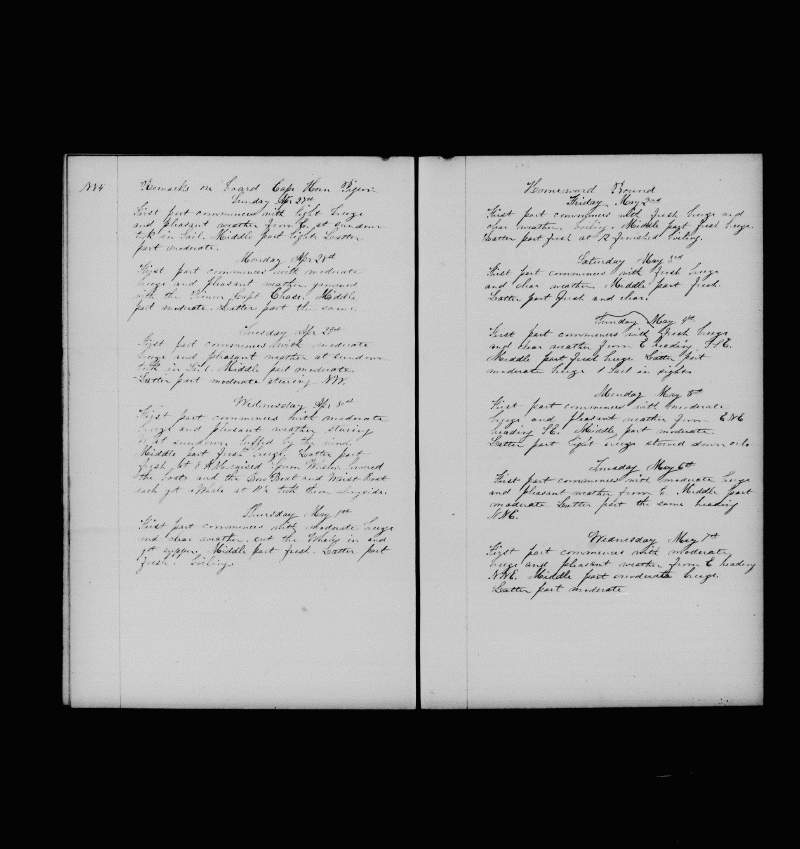 Remarks on board Cape Horn Pigeon
Sunday Apr 27th
First part commences with light breeze
and pleasant weather from E, at sundown
took in Sail. Middle part light. Latter
part moderate.
Monday Apr 28th
First part commences with moderate
breeze and pleasant weather gammed
with the Capt Chase. Middle
part moderate. Latter part the same.
Tuesday Apr 29th
First part commences with moderate
breeze and pleasant weather at sundown
took in Sail. Middle part moderate.
Latter part moderate steering NW.
Wednesday Apr 30th
First part commences with moderate
breeze and pleasant weather steering
at sundown luffed by the wind.
Middle part fresh breeze. Latter part
fresh, at 8 A.M. raised Sperm Whales, lowered
the boats and the Bow Boat and Waist Boat
each got a Whale at 11½ took them alongside.
Thursday May 1st
First part commences with moderate breeze
and clear weather. cut the Whales in and
got supper. Middle part fresh. Latter part
fresh. boiling.
Homeward Bound
Friday May 2nd
First part commences with fresh breeze and
clear weather. boiling. Middle part fresh breeze.
Latter part fresh at 12 finished boiling.
Saturday May 3rd
First part commences with fresh breeze
and clear weather. Middle part fresh.
Latter part fresh and clear.
Sunday May 4th
First part commences with fresh breeze
and clear weather from E heading S.S.E.
Middle part fresh breeze. Latter part
moderate breeze 1 Sail in sight.
Monday May 5th
First part commences with moderate
breeze and pleasant weather from ENE
heading SE. Middle part moderate.
Latter part light breeze stowed down oil.
Tuesday May 6th
First part commences with moderate breeze
and pleasant weather from E. Middle part
moderate Latter part the same heading
NNE.
Wednesday May 7th
First part commences with moderate
breeze and pleasant weather from E heading
NNE. Middle part moderate breeze.
Latter part moderate